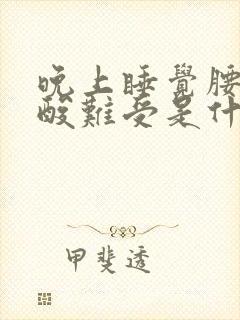 晚上睡覺腰
酸難受是什
甲斐透